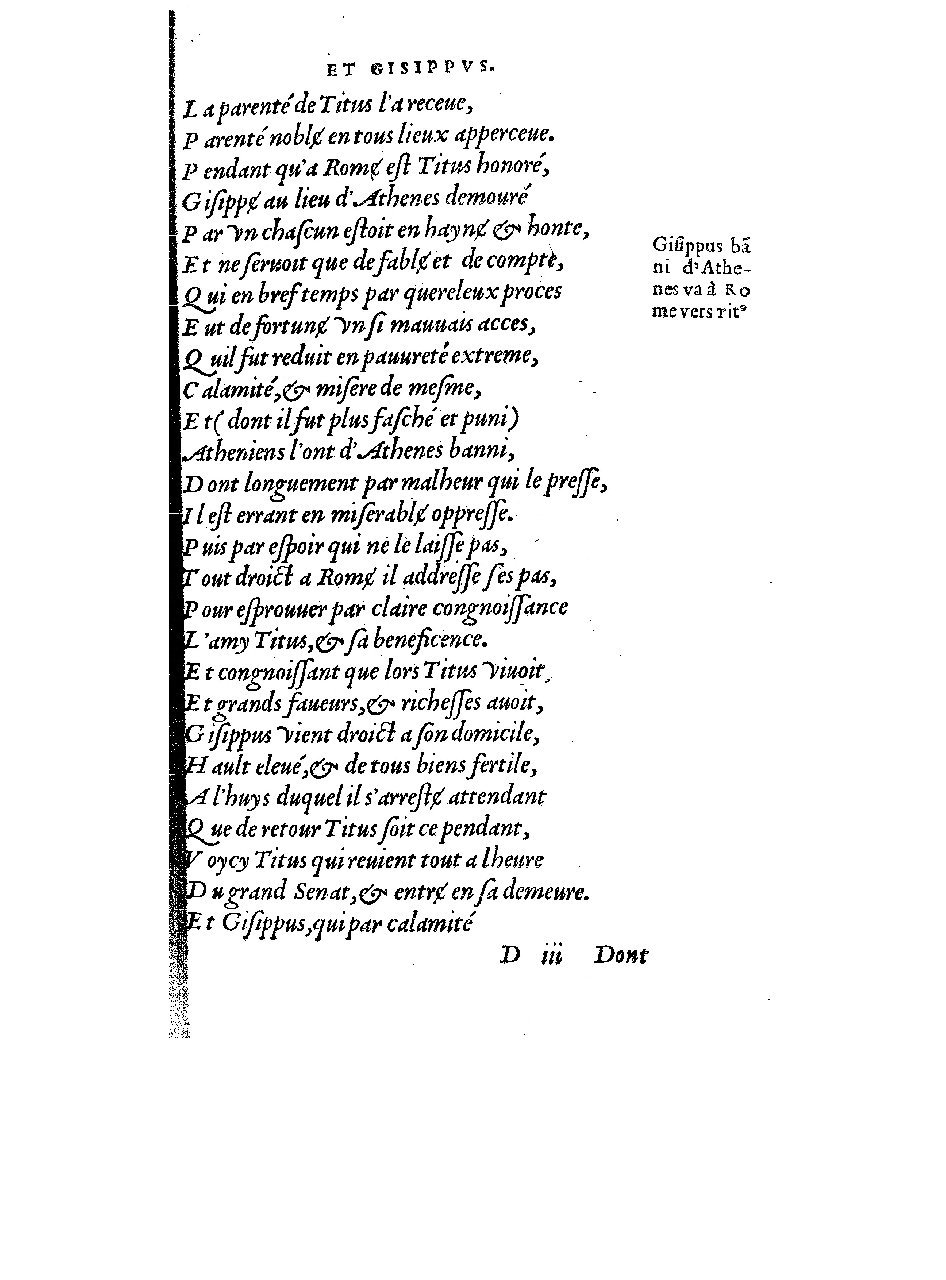 ET GISIPPVS.
La parenté de Titus l'a receue,
Parenté noblɇ en tous lieux apperceue.
Pendant qu'a Romɇ eſt Titus honoré,
Giſippɇ au lieu d'Athenes demouré
Par vn chaſcun eſtoit en haynɇ & honte,
Et ne ſeruoit que de fablɇ et de compte,
Qui en bref temps par quereleux proces
Eut de fortunɇ vn ſi mauuais acces,
Quil fut reduit en pauureté extreme,
Calamité, & miſere de meſme,
Et (dont il fut plus faſché et puni)
Atheniens l'ont d'Athenes banni,
Dont longuement par malheur qui le preſſe,
Il eſt errant en miſerablɇ oppreſſe.
Puis par eſpoir qui ne le laiſſe pas,
Tout droict a Romɇ il addreſſe ſes pas,
Pour eſprouuer par claire congnoiſſance
L'amy Titus, & ſa beneficence.
Et congnoiſſant que lors Titus viuoit,
Et grands faueurs, & richeſſes auoit,
Giſippus vient droict a ſon domicile,
Hault eleué, & de tous biens fertile,
A l'huys duquel il s'arreſtɇ attendant
Que de retour Titus ſoit ce pendant,
Voycy Titus qui reuient tout a lheure
Du grand Senat, & entrɇ en ſa demeure.
Et Giſippus, qui par calamité
D iii Dont
Giſippus bã
ni d'Athe-
nes va à Ro
me vers titꝰ